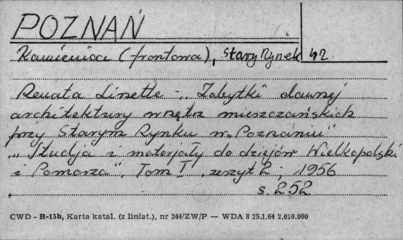 POZNAŃ
Kamienica (frontowa), Stary Rynek 42
Renata Linette - "Zabytki dawnej
architektury wnętrz mieszczańskich
przy Starym Rynku w Poznaniu"
"Studja i materjały do dziejów Wielkopolski
i Pomorza", Tom I, zeszyt 2, 1956
s. 252
CWD - B-15b, Karta katal. (z liniat.), nr 244/ZW/P — WDA 8 25.1.64 2.010.000